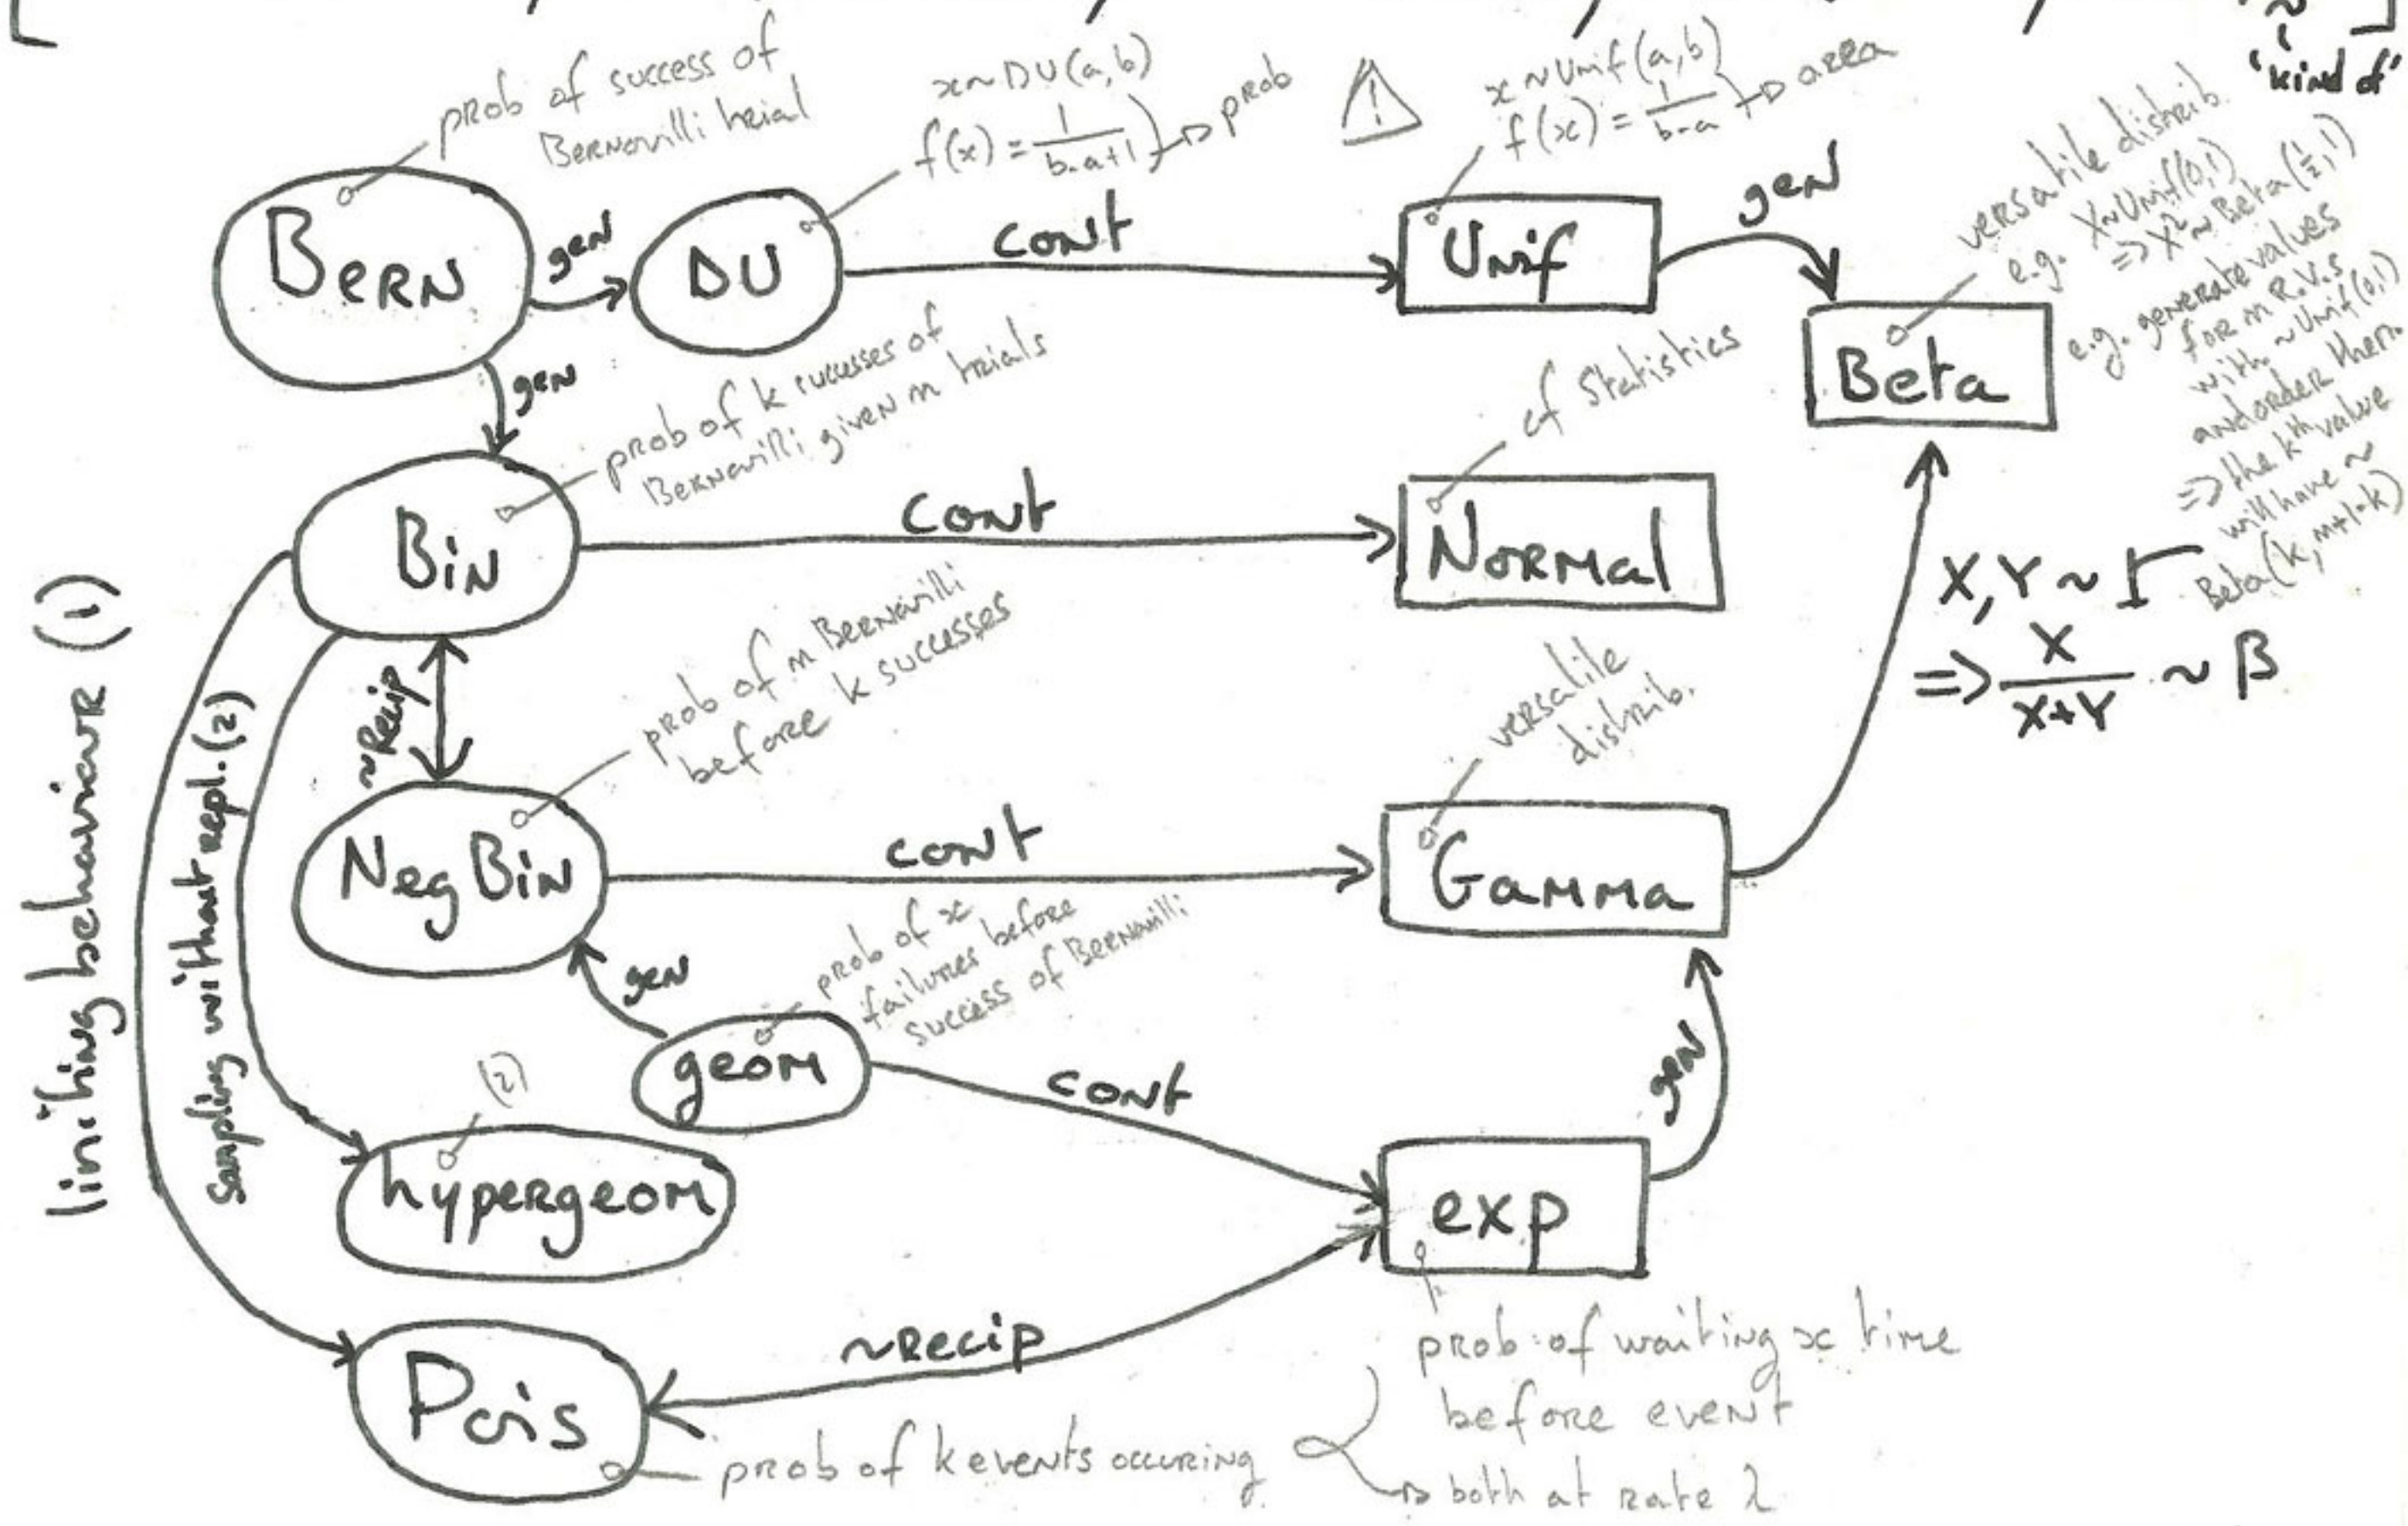 ~
'kind of'
prob of success of
Bernouilli trial
x~DU(a,b)
f(x) = 1/(b-a+1) → prob
!
x~Unif(a,b)
f(x) = 1/(b-a) → area
versatile distrib.
e.g. X~Unif(0,1)
=> X² ~ Beta(½,1)
e.g. generate values
for n R.V.s
with ~ Unif(0,1)
and order them.
=> the kth value
will have ~
Beta(k, n+1-k)
Bern
gen
DU
cont
Unif
gen
Beta
gen
prob of k successes of
Bernouilli given n trials
cf Statistics
Bin
cont
Normal
X,Y ~ Γ
=> X/(X+Y) ~ β
limiting behaviour (1)
Sampling without repl. (2)
~Recip
prob of n Bernouilli
before k successes
versatile
distrib.
Neg Bin
cont
Gamma
gen
prob of x
failures before
success of Bernouilli
geom
cont
gen
(2)
hypergeom
exp
~Recip
Pois
prob of k events occuring
prob. of waiting x time
before event
both at rate λ